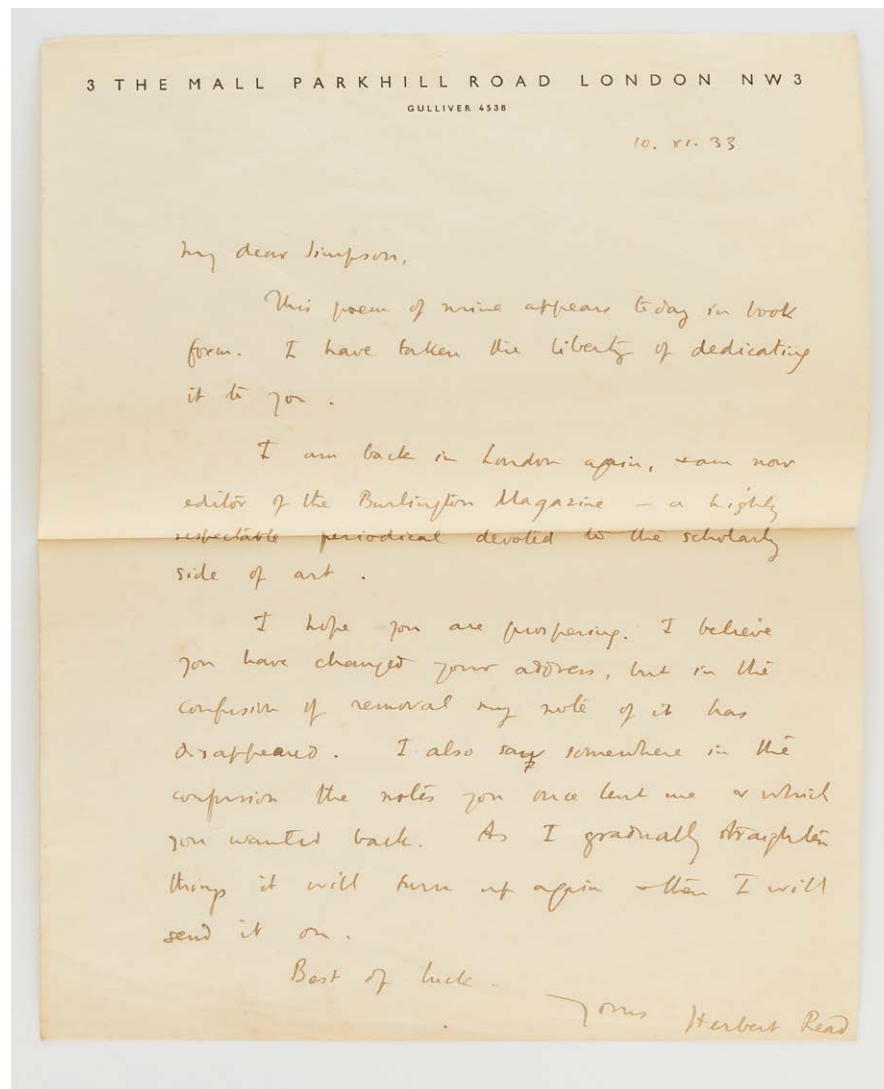 3 THE MALL PARKHILL ROAD LONDON NW3
GULLIVER 4538
10. XI. 33
My dear Simpson,
This poem of mine appears today in book
form. I have taken the liberty of dedicating
it to you.
I am back in London again, & am now
editor of the Burlington Magazine – a highly
respectable periodical devoted to the scholarly
side of art.
I hope you are prospering. I believe
you have changed your address, but in the
confusion of removal my note of it has
disappeared. I also saw somewhere in the
confusion the notes you once lent me & which
you wanted back. As I gradually straighten
things it will turn up again & then I will
send it on.
Best of luck –
Yours Herbert Read